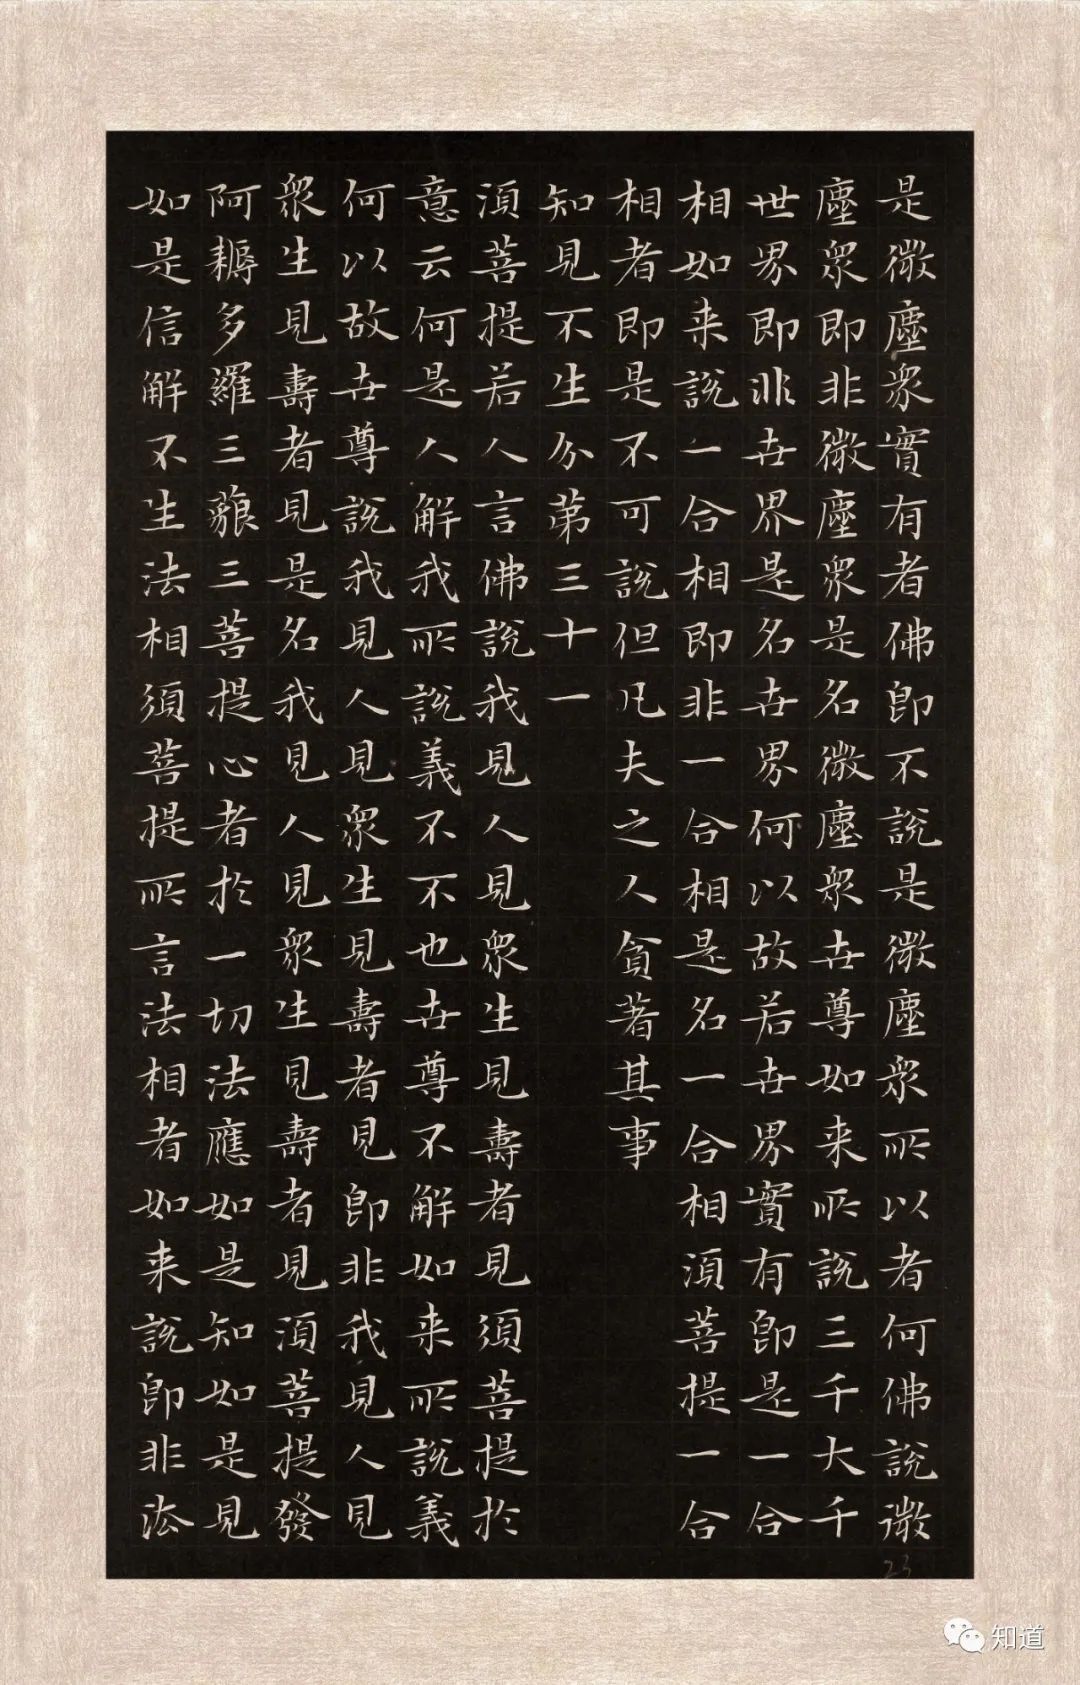 是微塵衆實有者佛即不說是微塵衆所以者何佛說微
塵衆即非微塵衆是名微塵衆世尊如来所說三千大千
世界即非世界是名世界何以故若世界實有即是一合
相如来說一合相即非一合相是名一合相須菩提一合
相者即是不可說但凡夫之人貪著其事
知見不生分第三十一
須菩提若人言佛說我見人見衆生見壽者見須菩提於
意云何是人解我所說義不不也世尊不解如来所說義
何以故世尊說我見人見衆生見壽者見即非我見人見
衆生見壽者見是名我見人見衆生見壽者見須菩提發
阿耨多羅三藐三菩提心者於一切法應如是知如是見
如是信解不生法相須菩提所言法相者如来說即非法
23
知道